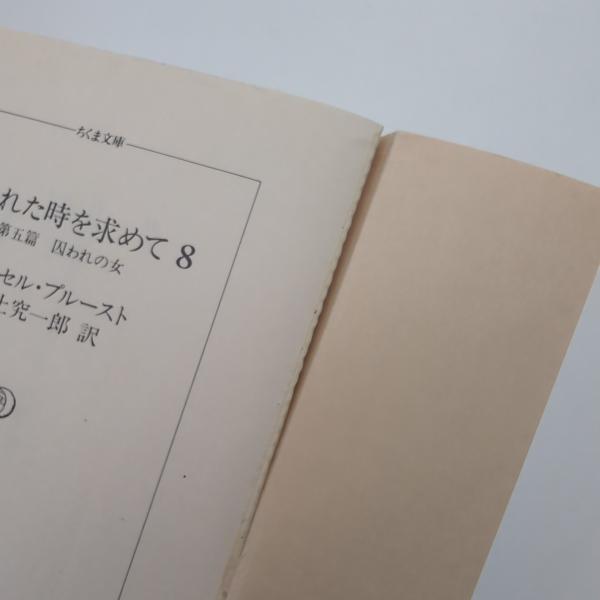 ちくま文庫
れた時を求めて 8
第五篇 囚われの女
セル・プルースト
上究一郎 訳